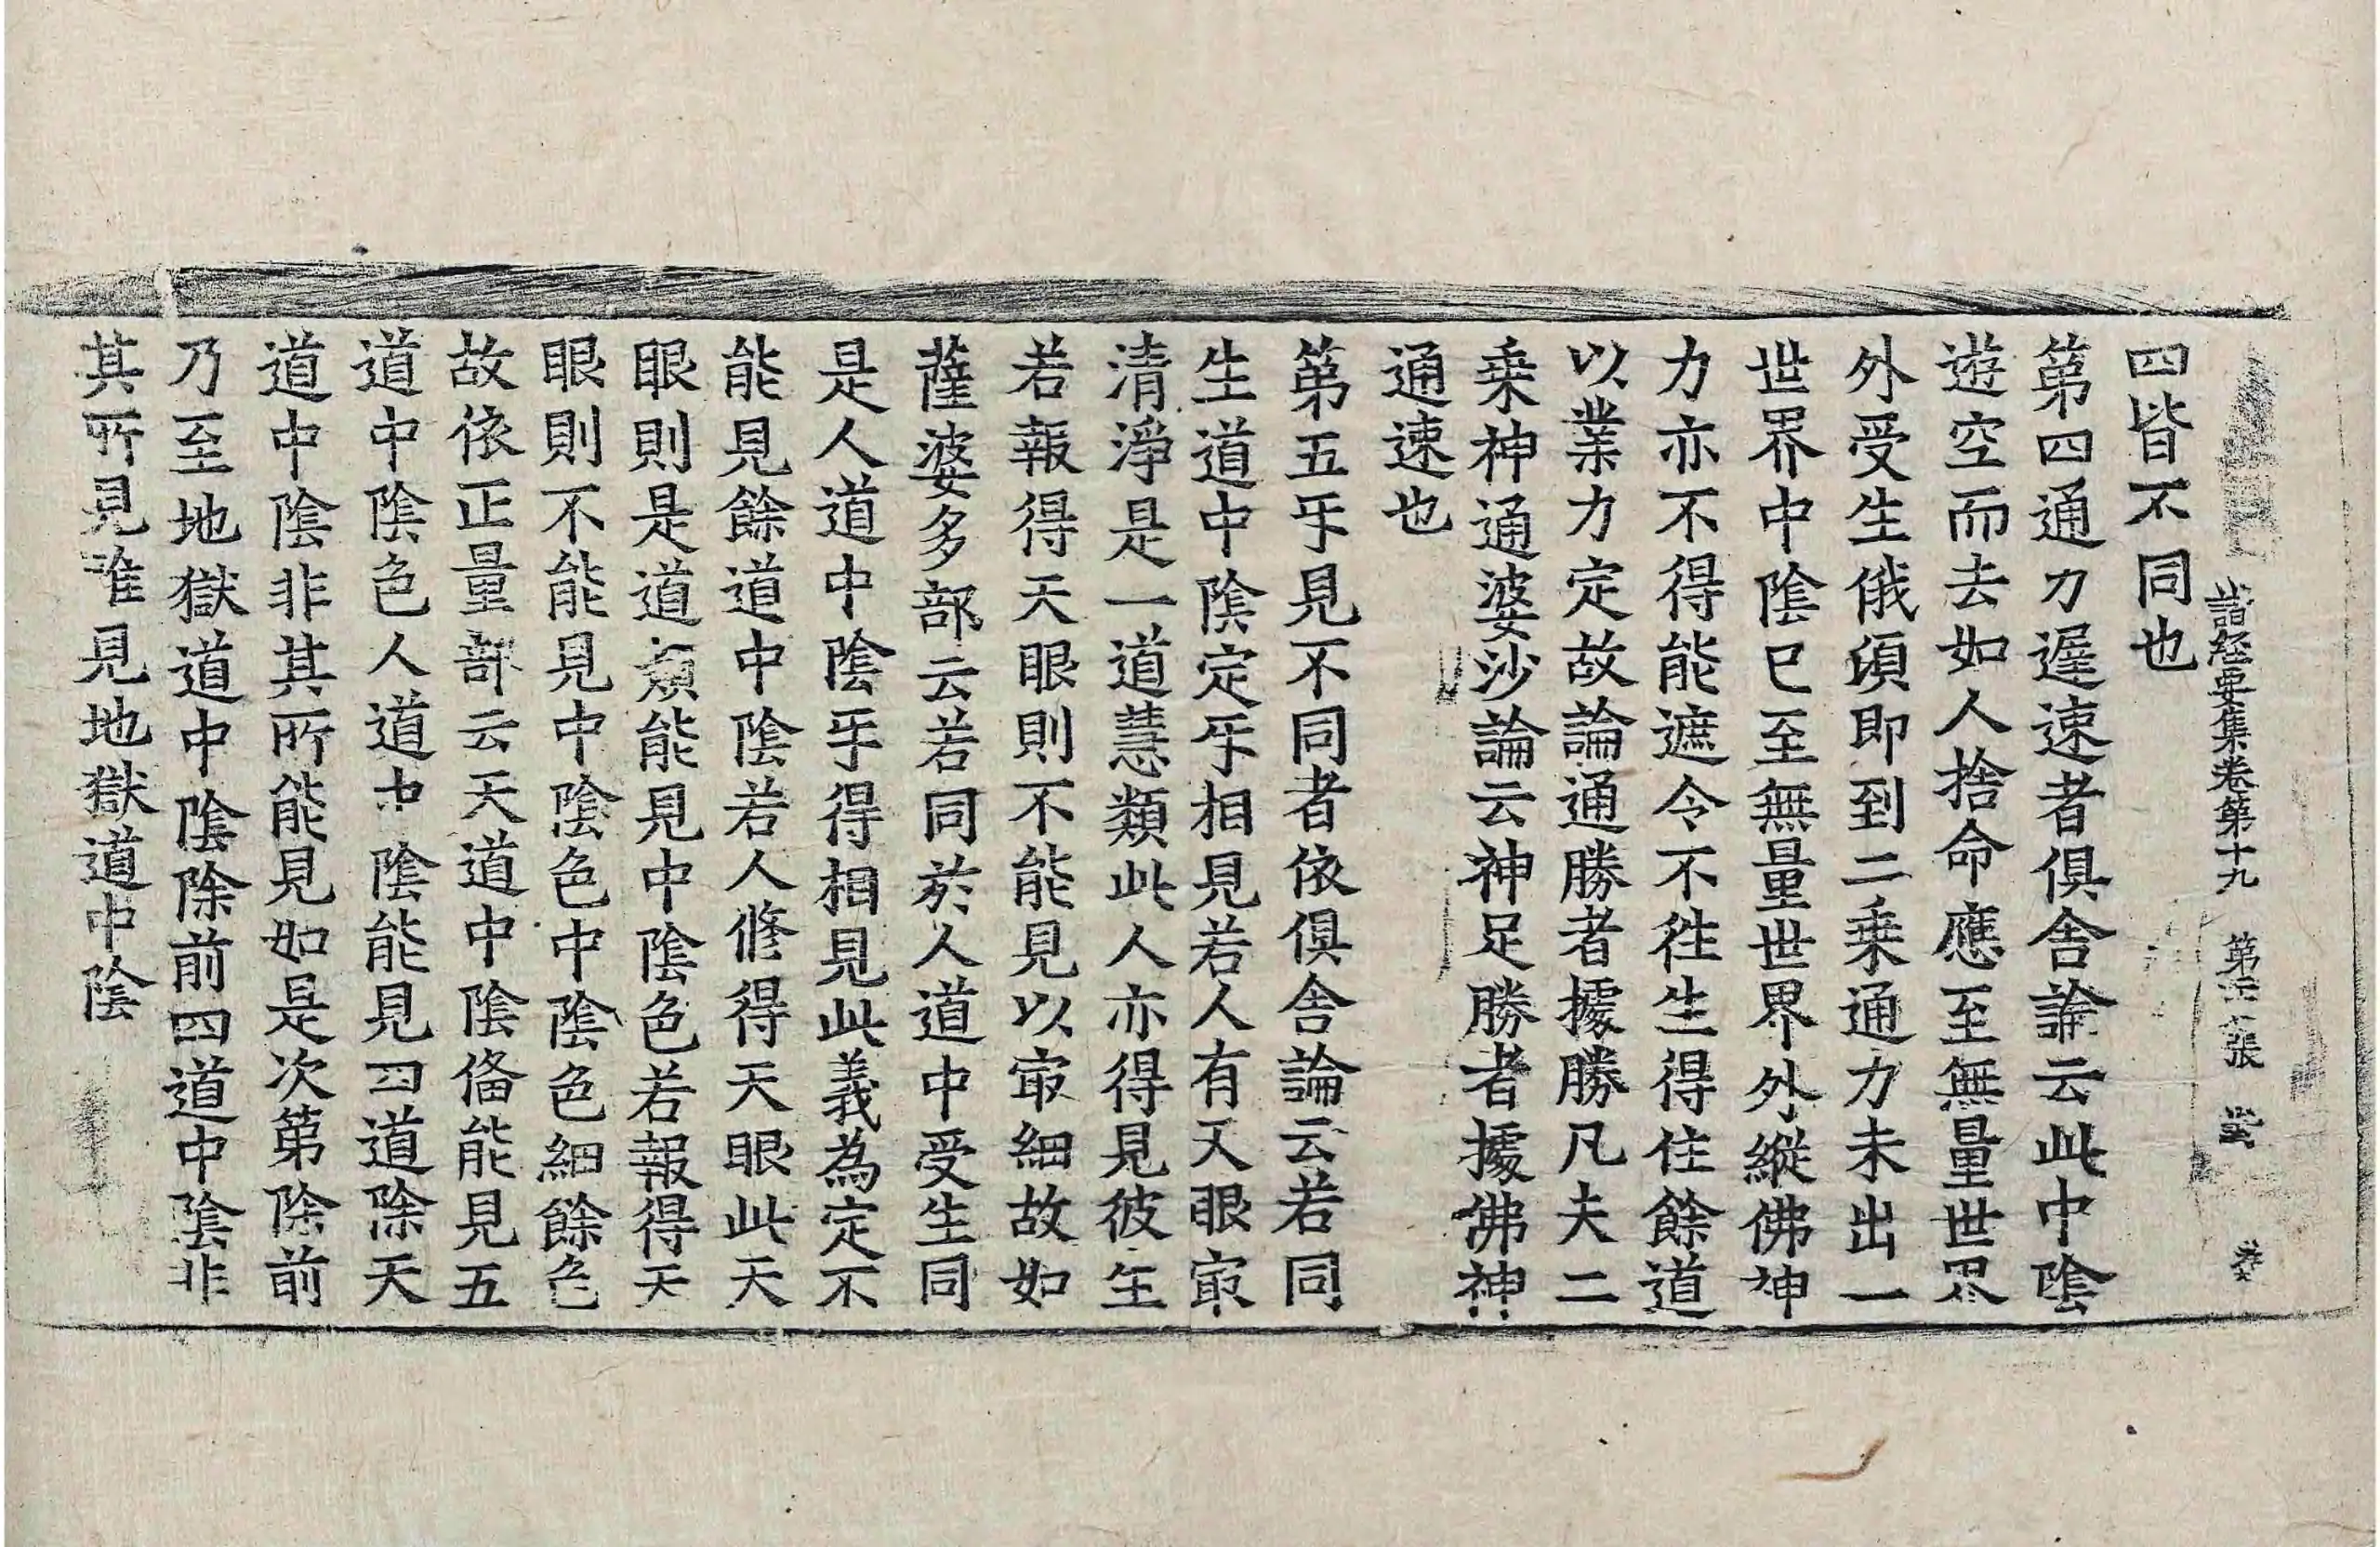 諸經要集卷第十九 第 張
四皆不同也
第四通力遅速者俱舍論云此中陰
遊空而去如人捨命應至無量世界
外受生俄須即到二乗通力未出一
世界中陰已至無量世界外縱佛神
力亦不得能遮令不徃生得住餘道
以業力定故論通勝者據勝凡夫二
乗神通婆沙論云神足勝者據佛神
通速也
第五㸦見不同者依俱舍論云若同
生道中陰定㸦相見若人有天眼㝡
清淨是一道慧類此人亦得見彼生
若報得天眼則不能見以㝡細故如
薩婆多部云若同於人道中受生同
是人道中陰㸦得相見此義為定不
能見餘道中陰若人修得天眼此天
眼則是道類能見中陰色若報得天
眼則不能見中陰色中陰色細餘色
故依正量部云天道中陰俻能見五
道中陰色人道中陰能見四道除天
道中陰非其所能見如是次第除前
乃至地獄道中陰除前四道中陰非
其所見唯見地獄道中陰